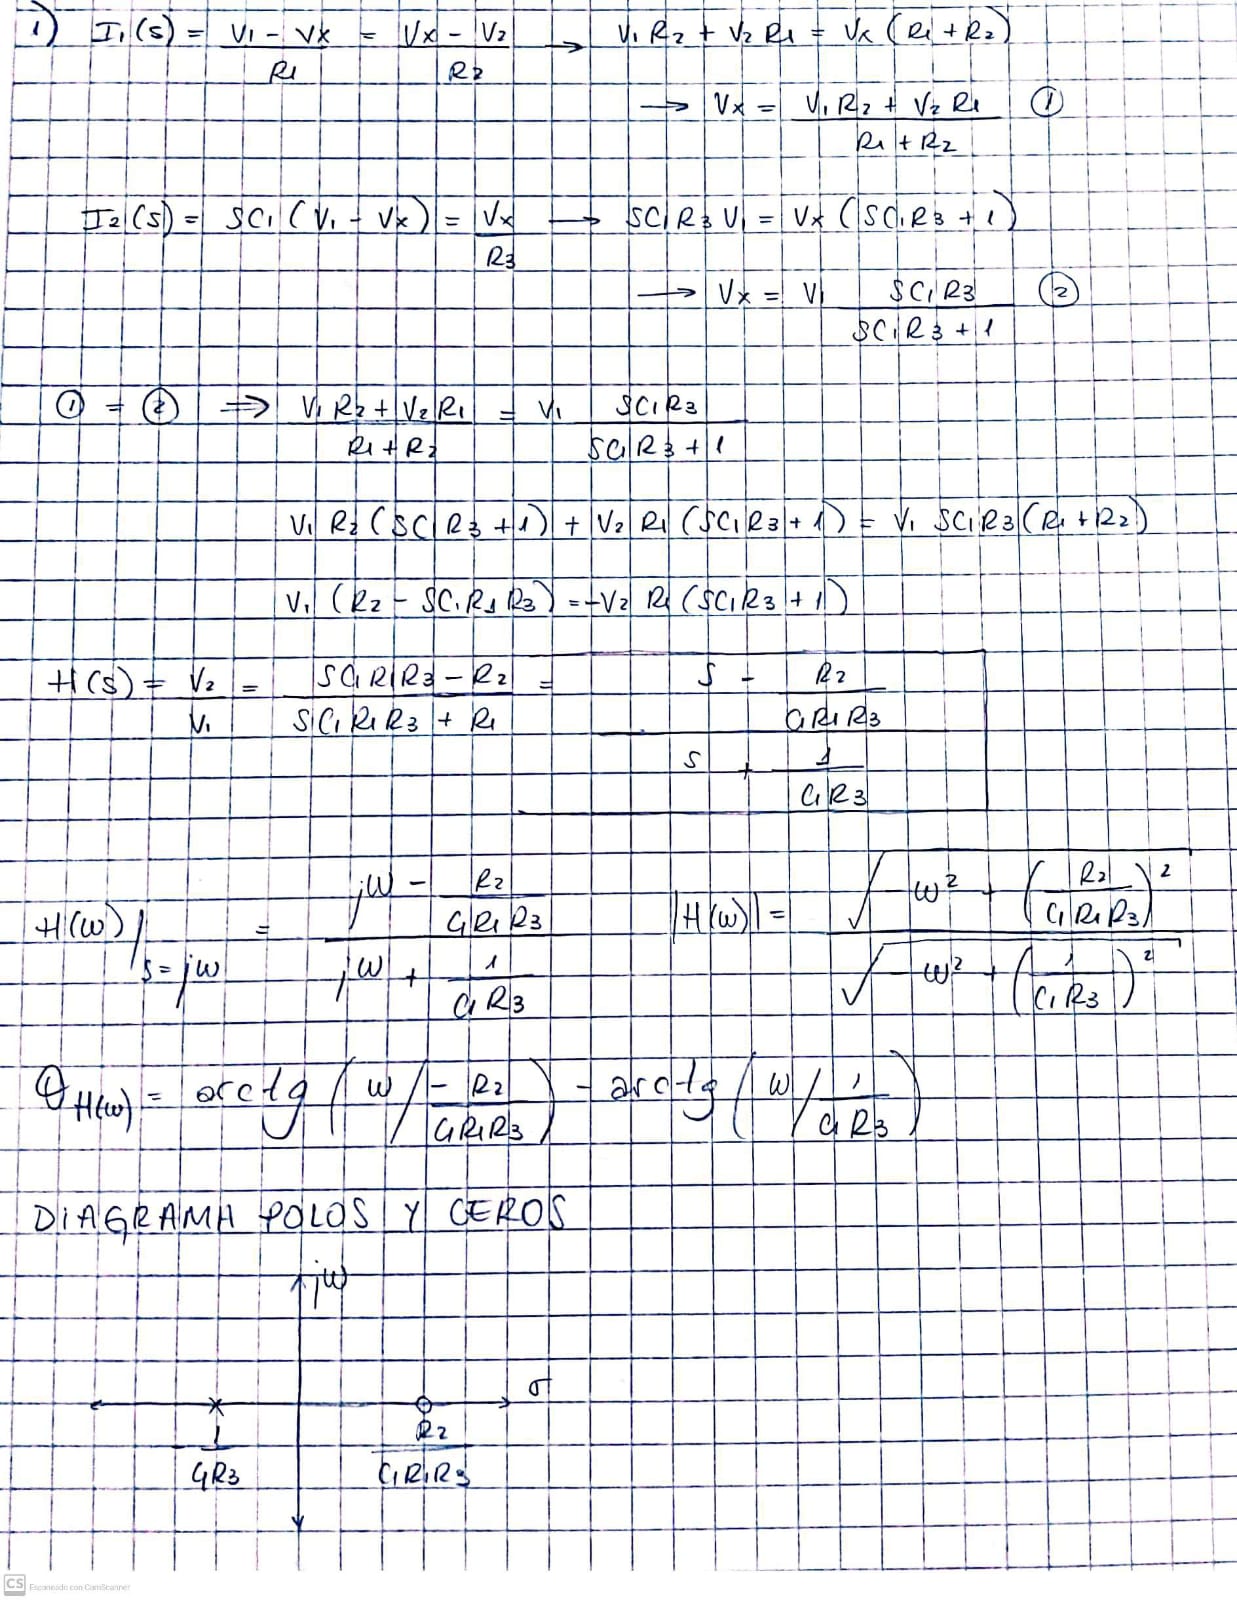 1) I₁(s) = (V₁ - Vx)/R₁ = (Vx - V₂)/R₂ → V₁ R₂ + V₂ R₁ = Vx (R₁ + R₂)
→ Vx = (V₁ R₂ + V₂ R₁)/(R₁ + R₂) ①
I₂(s) = SC₁ (V₁ - Vx) = Vx/R₃ → SC₁ R₃ V₁ = Vx (SC₁R₃ + 1)
→ Vx = V₁ SC₁R₃/(SC₁R₃ + 1) ②
① = ② ⇒ (V₁ R₂ + V₂ R₁)/(R₁ + R₂) = V₁ SC₁R₃/(SC₁R₃ + 1)
V₁ R₂ (SC₁R₃ + 1) + V₂ R₁ (SC₁R₃ + 1) = V₁ SC₁R₃ (R₁ + R₂)
V₁ (R₂ - SC₁R₁R₃) = -V₂ R₁ (SC₁R₃ + 1)
H(s) = V₂/V₁ = (SC₁R₁R₃ - R₂)/(SC₁R₁R₃ + R₁) = (S - R₂/(C₁R₁R₃))/(S + 1/(C₁R₃))
H(ω)|s=jω = (jω - R₂/(C₁R₁R₃))/(jω + 1/(C₁R₃)) |H(ω)| = √(ω² + (R₂/(C₁R₁R₃))²)/√(ω² + (1/(C₁R₃))²)
θH(ω) = arctg (ω / -R₂/(C₁R₁R₃)) - arctg (ω / 1/(C₁R₃))
DIAGRAMA POLOS Y CEROS
jω
σ
1/(C₁R₃) R₂/(C₁R₁R₃)
CS Escaneado con CamScanner